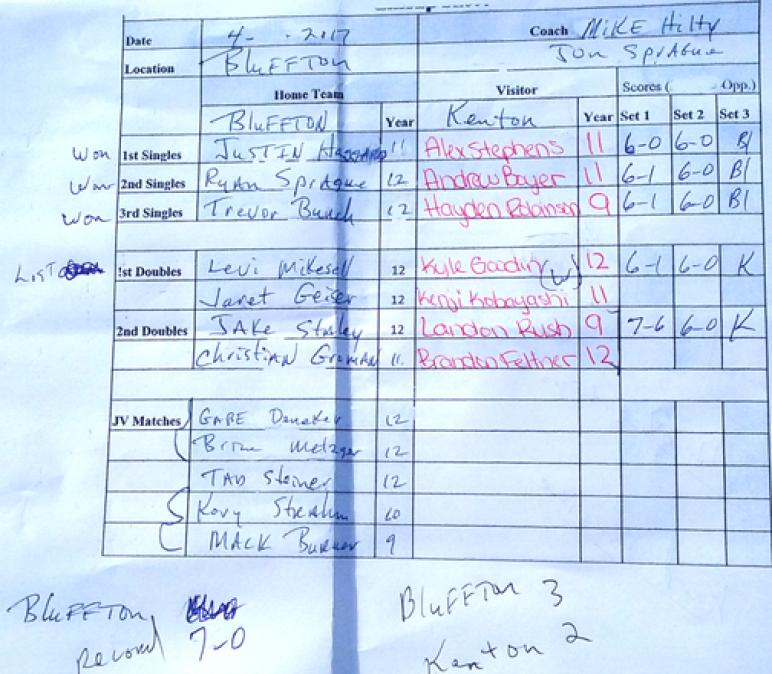 Date 4- .2017 Coach MIKE Hilty
Location BLUFFTON Jon Sprague
Home Team Visitor Scores ( Opp.)
BLUFFTON Year Kenton Year Set 1 Set 2 Set 3
Won 1st Singles JUSTIN 11 Alex Stephens 11 6-0 6-0 Bl
Won 2nd Singles Ryan Sprague 12 Andrew Boyer 11 6-1 6-0 Bl
Won 3rd Singles Trevor Bunch 12 Hayden Robinson 9 6-1 6-0 Bl
LOST 1st Doubles Levi Mikesell 12 Kyle Goodin (W) 12 6-1 6-0 K
Jaret Geiser 12 Kenji Kobayashi 11
2nd Doubles JAKE Staley 12 Landon Rush 9 7-6 6-0 K
Christian Groman 11 Brandon Feltner 12
JV Matches GABE 12
Metzger 12
TAD Steiner 12
Kory Strahm 10
MACK 9
BLUFFTON
Record 7-0
BLUFFTON 3
Kenton 2